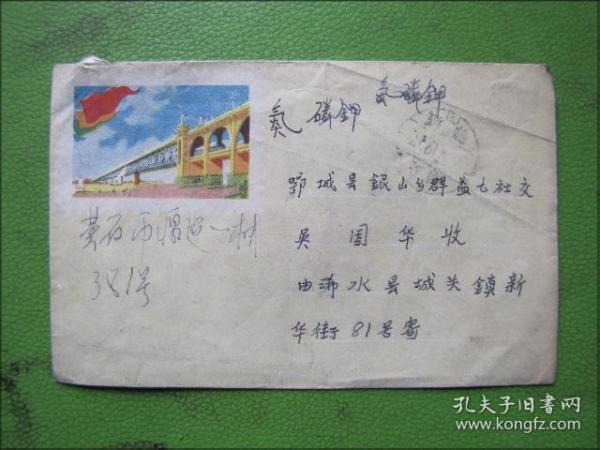 氮 磷鉀
氮 磷鉀
鄂城县銀山乡群益七社交
吳国华收
由浠水县城关鎮新
华街81号寄
黃石市 一村
381号
孔夫子旧书网
www.kongfz.com